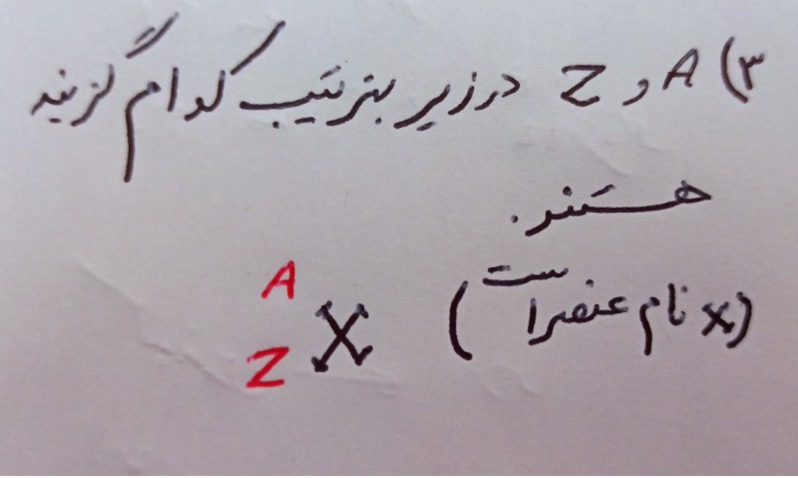 ۳) A و Z در زیر بترتیب کدام گزینه
هستند.
(X نام عنصر است)
A
Z X